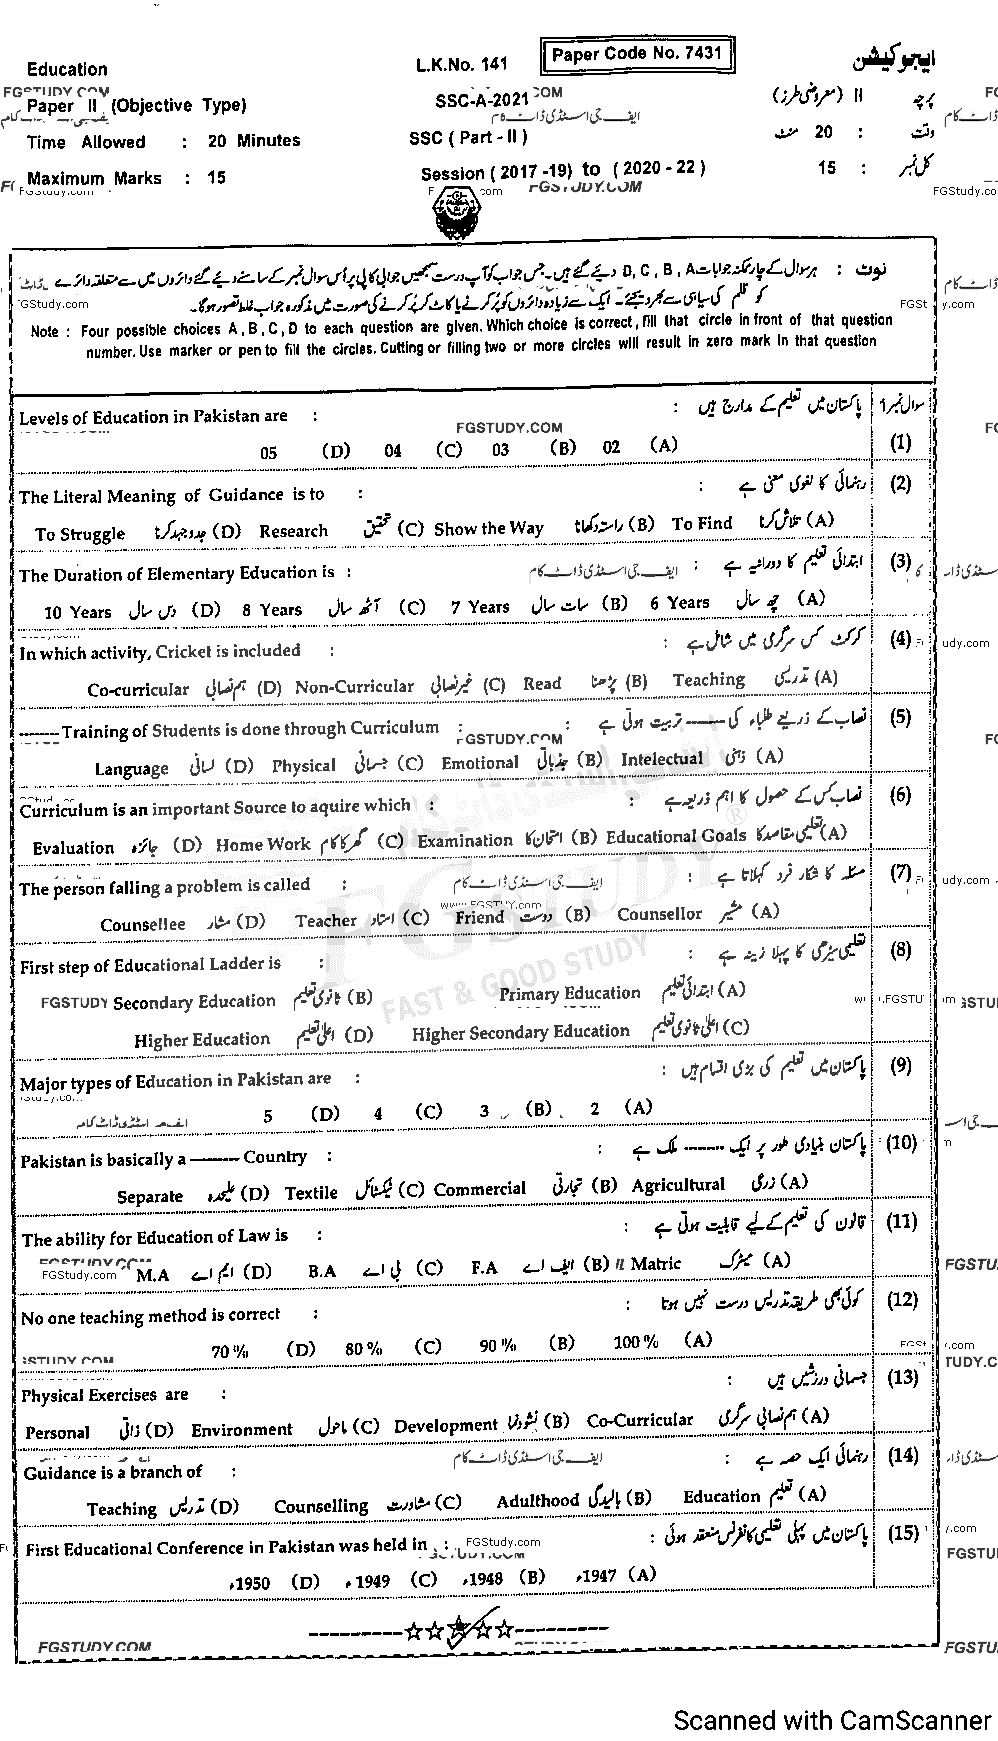 Education
L.K.No. 141
Paper Code No. 7431
ایجوکیشن
Paper II (Objective Type)
SSC-A-2021
پرچہ II (معروضی طرز)
Time Allowed : 20 Minutes
SSC ( Part - II )
وقت : 20 منٹ
Maximum Marks : 15
Session ( 2017 -19) to ( 2020 - 22 )
کل نمبر : 15
نوٹ : ہر سوال کے چار ممکنہ جوابات D, C, B, A دیئے گئے ہیں۔ جس جواب کو آپ درست سمجھیں جوابی کاپی پر اُس سوال نمبر کے سامنے دیئے گئے دائروں میں سے متعلقہ دائرے
کو قلم کی سیاہی سے بھر دیجئے۔ ایک سے زیادہ دائروں کو پُر کرنے یا کاٹ کر پُر کرنے کی صورت میں مذکورہ جواب غلط تصور ہوگا۔
Note : Four possible choices A , B , C , D to each question are given. Which choice is correct , fill that circle in front of that question
number. Use marker or pen to fill the circles. Cutting or filling two or more circles will result in zero mark in that question
Levels of Education in Pakistan are : پاکستان میں تعلیم کے مدارج ہیں : سوال نمبر 1
05 (D) 04 (C) 03 (B) 02 (A) (1)
The Literal Meaning of Guidance is to : رہنمائی کا لغوی معنی ہے : (2)
To Struggle جدوجہد کرنا (D) Research تحقیق (C) Show the Way راستہ دکھانا (B) To Find تلاش کرنا (A)
The Duration of Elementary Education is : ابتدائی تعلیم کا دورانیہ ہے : (3)
10 Years دس سال (D) 8 Years آٹھ سال (C) 7 Years سات سال (B) 6 Years چھ سال (A)
In which activity, Cricket is included : کرکٹ کس سرگرمی میں شامل ہے : (4)
Co-curricular ہم نصابی (D) Non-Curricular غیر نصابی (C) Read پڑھنا (B) Teaching تدریسی (A)
------- Training of Students is done through Curriculum : نصاب کے ذریعے طلباء کی ------ تربیت ہوتی ہے : (5)
Language لسانی (D) Physical جسمانی (C) Emotional جذباتی (B) Intelectual ذہنی (A)
Curriculum is an important Source to aquire which : نصاب کس کے حصول کا اہم ذریعہ ہے : (6)
Evaluation جائزہ (D) Home Work گھر کا کام (C) Examination امتحان کا (B) Educational Goals تعلیمی مقاصد کا (A)
The person falling a problem is called : مسئلہ کا شکار فرد کہلاتا ہے : (7)
Counsellee مشار (D) Teacher استاد (C) Friend دوست (B) Counsellor مشیر (A)
First step of Educational Ladder is : تعلیمی سیڑھی کا پہلا زینہ ہے : (8)
Secondary Education ثانوی تعلیم (B) Primary Education ابتدائی تعلیم (A)
Higher Education اعلیٰ تعلیم (D) Higher Secondary Education اعلیٰ ثانوی تعلیم (C)
Major types of Education in Pakistan are : پاکستان میں تعلیم کی بڑی اقسام ہیں : (9)
5 (D) 4 (C) 3 (B) 2 (A)
Pakistan is basically a ------- Country : پاکستان بنیادی طور پر ایک ------ ملک ہے : (10)
Separate علیحدہ (D) Textile ٹیکسٹائل (C) Commercial تجارتی (B) Agricultural زرعی (A)
The ability for Education of Law is : قانون کی تعلیم کے لیے قابلیت ہوتی ہے : (11)
M.A ایم اے (D) B.A بی اے (C) F.A ایف اے (B) Matric میٹرک (A)
No one teaching method is correct : کوئی بھی طریقہ تدریس درست نہیں ہوتا : (12)
70 % (D) 80 % (C) 90 % (B) 100 % (A)
Physical Exercises are : جسمانی ورزشیں ہیں : (13)
Personal ذاتی (D) Environment ماحول (C) Development نشوونما (B) Co-Curricular ہم نصابی سرگرمی (A)
Guidance is a branch of : رہنمائی ایک حصہ ہے : (14)
Teaching تدریس (D) Counselling مشاورت (C) Adulthood بالیدگی (B) Education تعلیم (A)
First Educational Conference in Pakistan was held in : پاکستان میں پہلی تعلیمی کانفرنس منعقد ہوئی : (15)
1950ء (D) 1949ء (C) 1948ء (B) 1947ء (A)
FGSTUDY.COM
FGStudy.com
ایف جی اسٹڈی ڈاٹ کام
www.FGSTUDY.com
FGSTUDY
FAST & GOOD STUDY
Scanned with CamScanner